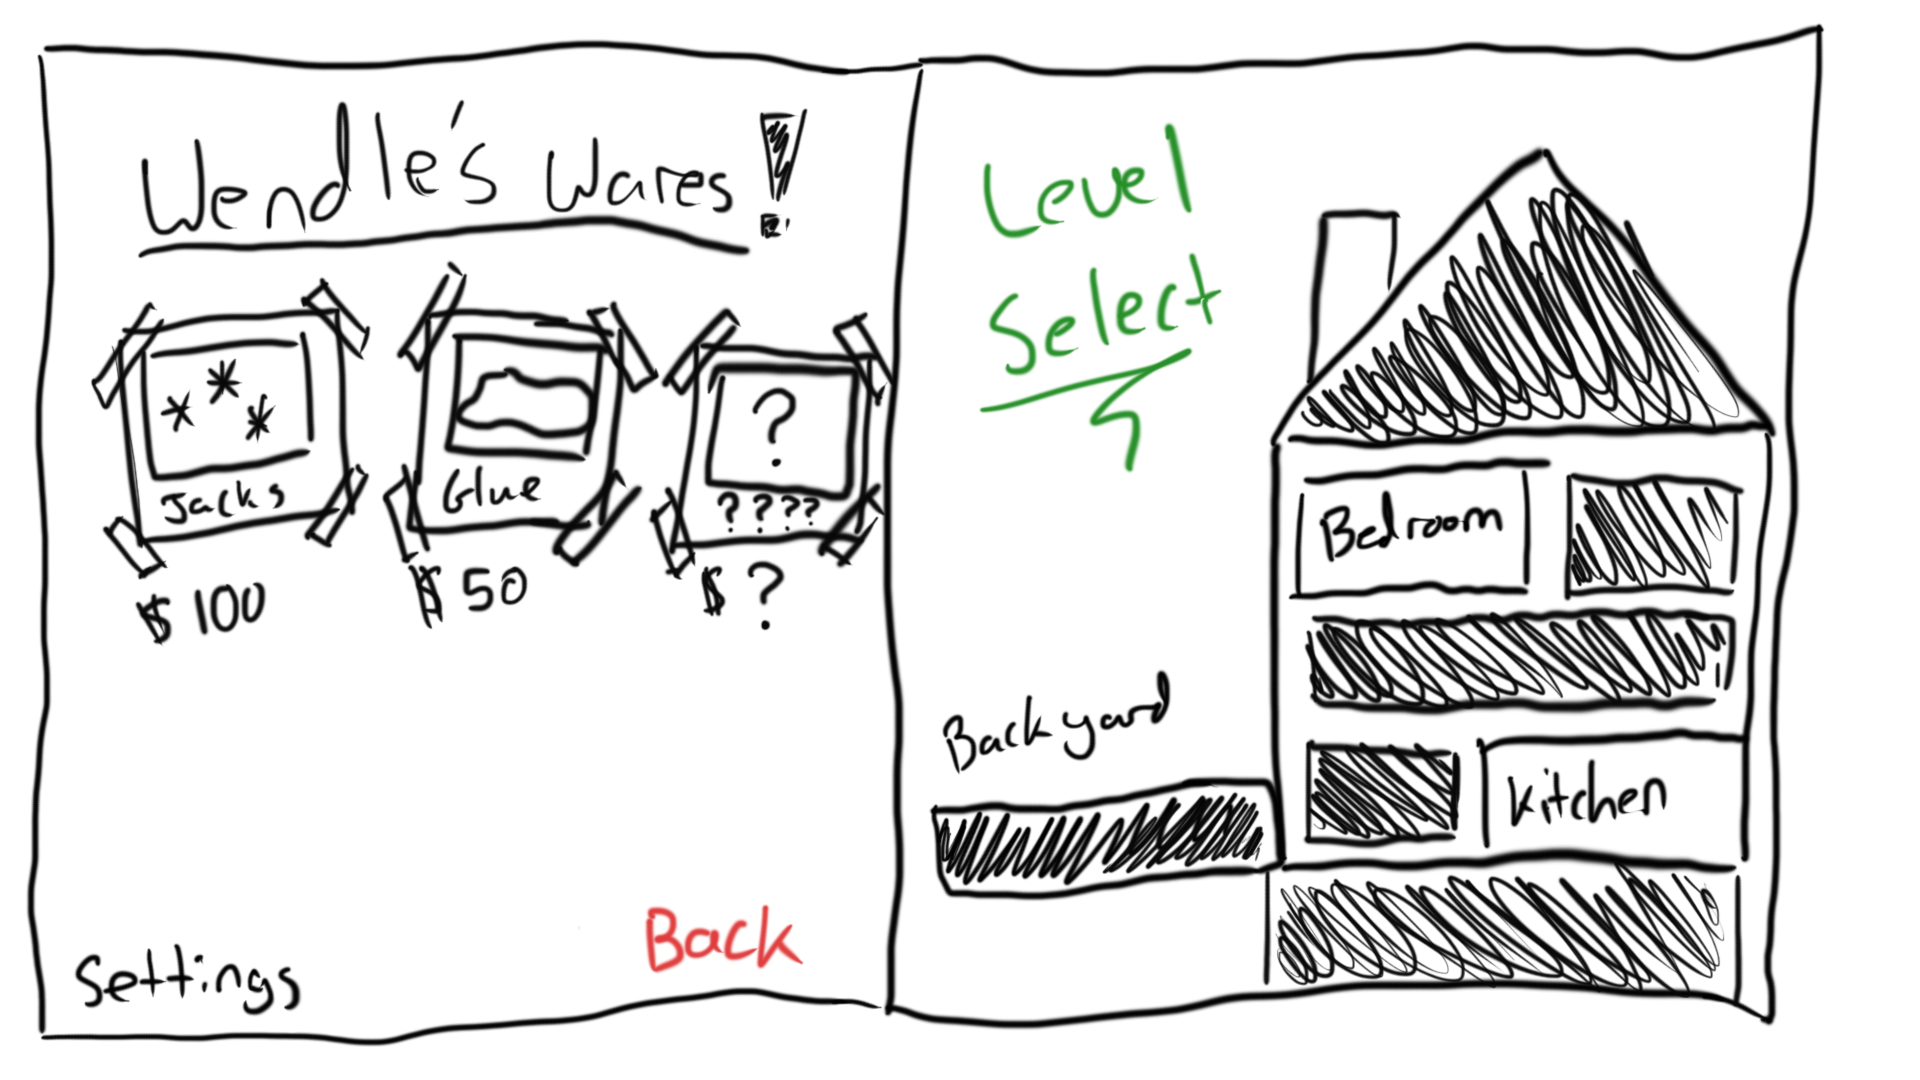 Wendle's Wares!
?
Jacks
Glue
????
$100
$50
$?
Settings
Back
Level
Select
Bedroom
Backyard
Kitchen